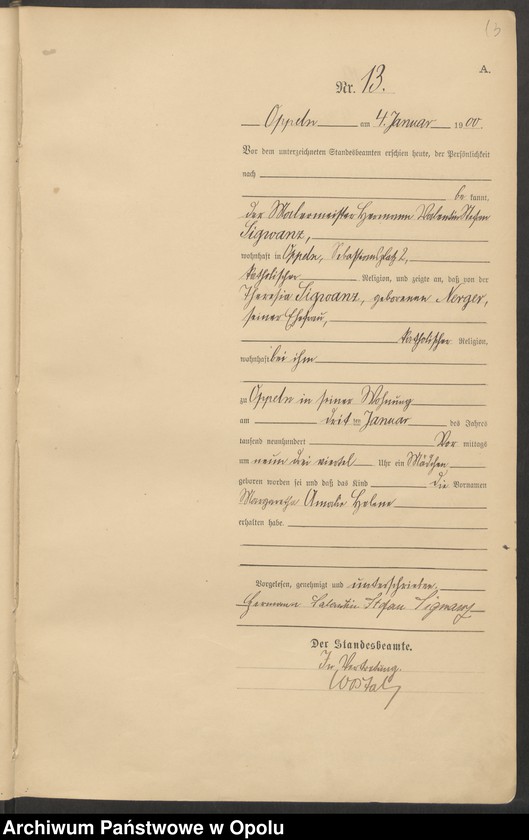 13
A.
Nr. 13.
Oppeln am 4. Januar 1900
Vor dem unterzeichneten Standesbeamten erschien heute, der Persönlichkeit
nach
be kannt,
der Malermeister Hermann Valentin Stefan
Sigwanz,
wohnhaft in Oppeln, Sebastiansplatz 2,
katholischer Religion, und zeigte an, daß von der
Theresia Sigwanz, geborenen Nerger,
seiner Ehefrau,
katholischer Religion,
wohnhaft bei ihm
zu Oppeln in seiner Wohnung
am Januar des Jahres
tausend neunhundert Vor mittags
um neun drei viertel Uhr ein Mädchen
geboren worden sei und daß das Kind die Vornamen
Margaretha Amalie Helene
erhalten habe.
Vorgelesen, genehmigt und unterschrieben.
Hermann Valentin Stefan Sigwanz
Der Standesbeamte.
In Vertretung.
Wostal
Archiwum Państwowe w Opolu